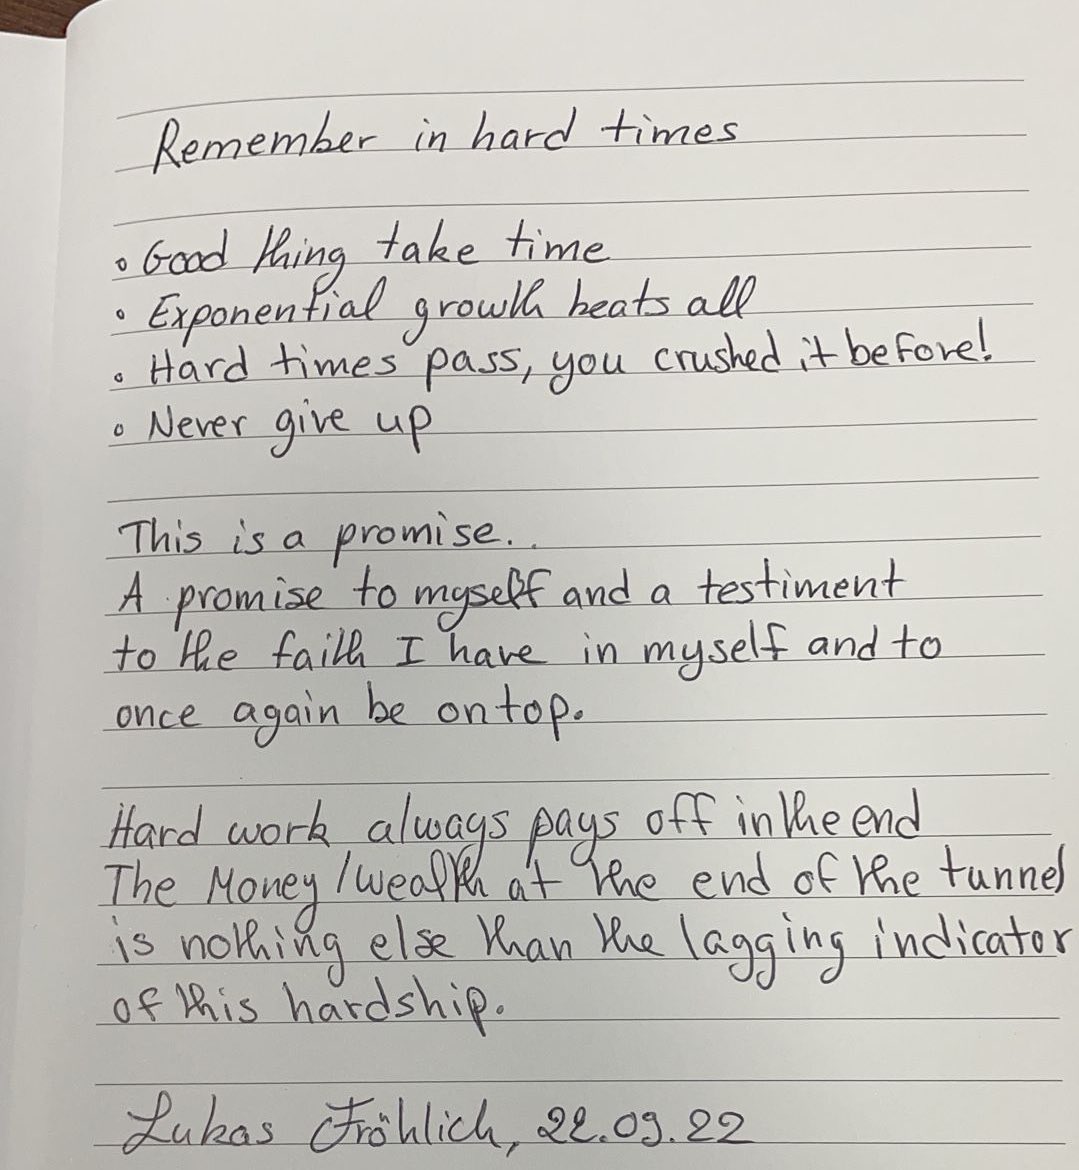 Remember in hard times
• Good thing take time
• Exponential growth beats all
• Hard times pass, you crushed it before!
• Never give up
This is a promise..
A promise to myself and a testiment
to the faith I have in myself and to
once again be on top.
Hard work always pays off in the end
The Money/wealth at the end of the tunnel
is nothing else than the lagging indicator
of this hardship.
Lukas Fröhlich, 22.09.22